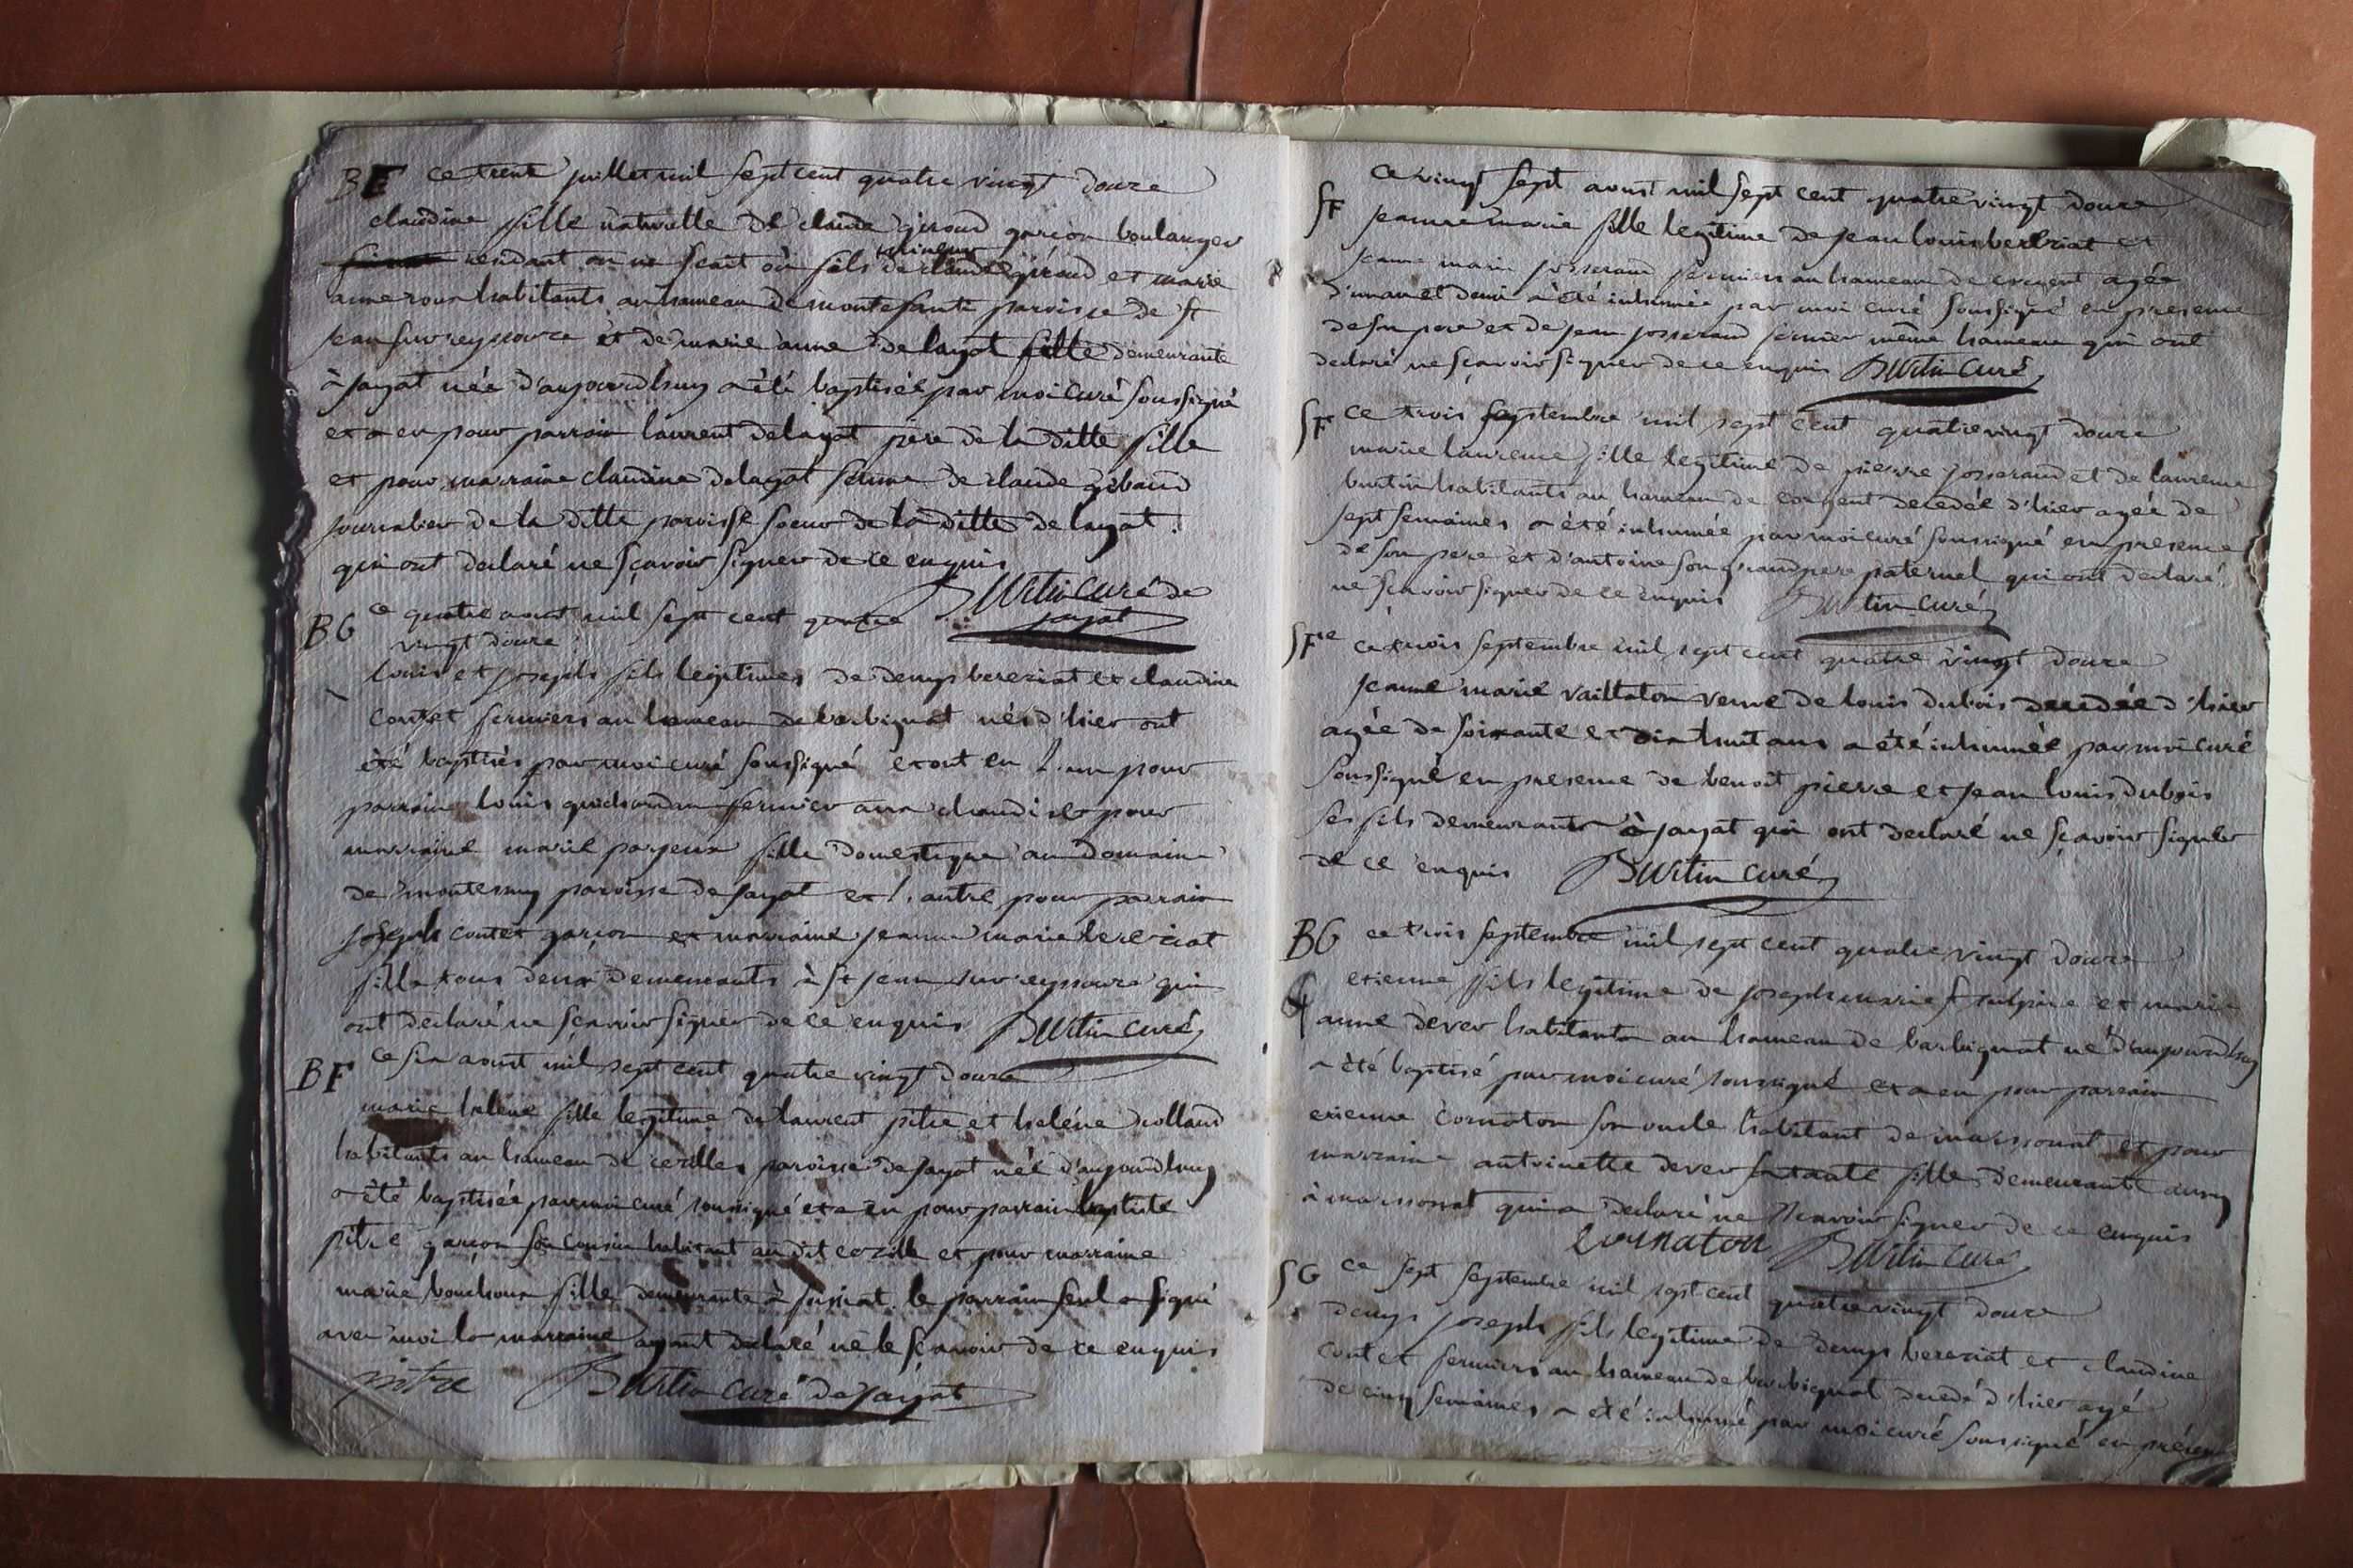 BF ce trente juillet mil sept cent quatre vingt douze
claudine fille naturelle de claude giroud garcon boulanger
residant on ne scait où fils mineur de claude giroud et marie
anne roux habitants au hameau de montefanti paroisse de st
jean sur reyssouze et de marie anne delayat fille demeurante
à jayat née d'aujourdhuy a été baptisée par moi curé soussigné
et a eu pour parrain laurent delayat père de la ditte fille
et pour marraine claudine delayat femme de claude gibaud
journalier de la ditte paroisse soeur de la ditte delayat
qui ont declaré ne sçavoir signer de ce enquis
Burtin curé de
jayat
BG ce quatre aout mil sept cent quatre
vingt douze
louis et joseph fils legitimes de denys bererziat et claudine
contet fermiers au hameau de barbignat nés d'hier ont
été baptisés par moi curé soussigné et ont eu l'un pour
parrain louis guichardan fermier aux chaudi et pour
marraine marie payeux fille domestique au domaine
de montemuy paroisse de jayat et l'autre pour parrain
joseph contet garçon et marraine jeanne marie bereiziat
fille tous deux demeurants à st jean sur reyssouze qui
ont declaré ne scavoir signer de ce enquis Burtin curé
BF ce six aoust mil sept cent quatre vingt douze
marie helene fille legitime de laurent pitre et heléne rolland
habitants au hameau de cezilles paroisse de jayat née d'aujourdhuy
a été baptisée par moi curé soussigné et a eu pour parrain baptiste
pitre garçon son cousin habitant au dit cezille et pour marraine
marie bouchoux fille demeurante à jayat le parrain seul a signé
avec moi la marraine ayant declaré ne le sçavoir de ce enquis
pitre Burtin curé de jayat
SF ce vingt sept aoust mil sept cent quatre vingt douze
jeanne marie fille legitime de jean louis berlriat et
jeanne marie josserand fermiers au hameau de cezent agée
d'un an et demi a été inhumée par moi curé soussigné en presence
de son pere et de jean josserand fermier même hameau qui ont
declaré ne sçavoir signer de ce enquis Burtin curé
SF ce trois septembre mil sept cent quatre vingt douze
marie laurence fille legitime de pierre josserand et de laurence
burtin habitants au hameau de cezent decedée d'hier agée de
sept semaines a été inhumée par moi curé soussigné en presence
de son pere et d'antoine son grand pere paternel qui ont declaré
ne sçavoir signer de ce enquis Burtin curé
SFe ce trois septembre mil sept cent quatre vingt douze
jeanne marie vaillaton veuve de louis dubois decedée d'hier
agée de soixante et dix huit ans a été inhumée par moi curé
soussigné en presence de benoit pierre et jean louis dubois
ses fils demeurants à jayat qui ont declaré ne sçavoir signer
de ce enquis Burtin curé
BG ce trois septembre mil sept cent quatre vingt douze
etienne fils legitime de joseph marie st sulpice et marie
anne derer habitants au hameau de barbignat né d'aujourdhuy
a été baptisé par moi curé soussigné et a eu pour parrain
etienne cornaton son oncle habitant de marsonat et pour
marraine antoinette derer sa tante fille demeurante aussy
à marsonnat qui a declaré ne sçavoir signer de ce enquis
Cornaton Burtin curé
SG ce sept septembre mil sept cent quatre vingt douze
denys joseph fils legitime de denys bereziat et claudine
contet fermiers au hameau de barbignat decedé d'hier agé
de cinq semaines a été inhumé par moi curé soussigné en présence